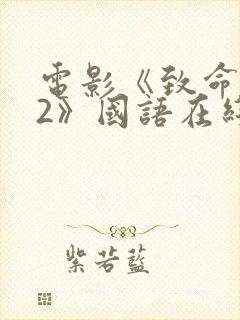 電影《致命
2》國語在
紫若藍